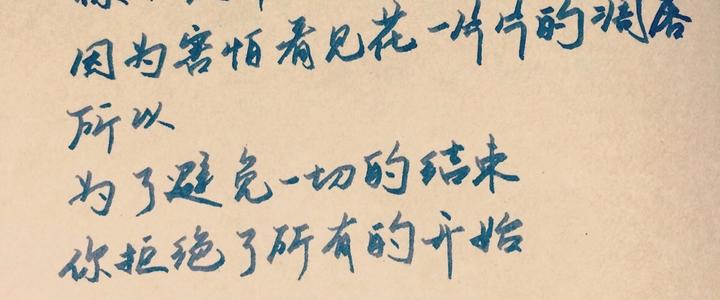 因为害怕看见花一片片的凋落
所以
为了避免一切的结束
你拒绝了所有的开始